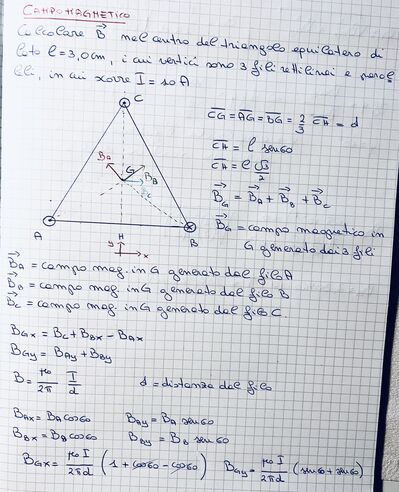 CAMPO MAGNETICO
Calcolare B⃗ nel centro del triangolo equilatero di
lato l = 3,0 cm, i cui vertici sono 3 fili rettilinei e paral
leli, in cui scorre I = 10 A
C
CG = AG = BG = 2/3 CH = d
CH = l sen60
CH = l √3/2
B⃗G = B⃗A + B⃗B + B⃗C
B⃗G = campo magnetico in
G generato dai 3 fili
BA
G
BB
BC
A
H
B
y
x
B⃗A = campo mag. in G generato dal filo A
B⃗B = campo mag. in G generato dal filo B
B⃗C = campo mag. in G generato dal filo C.
BGx = BC + BBx - BAx
BGy = BAy + BBy
B = μ0/2π I/d d = distanza dal filo
BAx = BA cos60 BAy = BA sen60
BBx = BB cos60 BBy = BB sen60
BGx = μ0 I/2πd (1 + cos60 - cos60) BGy = μ0 I/2πd (sen60 + sen60)